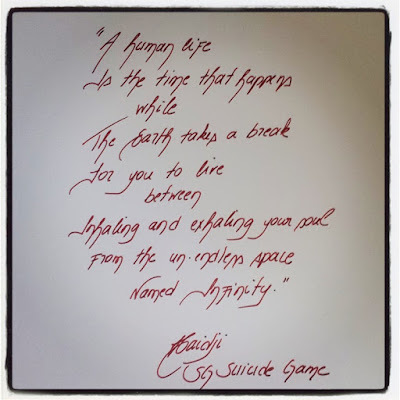 "A human life
Is the time that happens
while
The Earth takes a break
For you to live
between
Inhaling and exhaling your soul
From the un-endless space
Named Infinity."
Haidji
SG Suicide Game